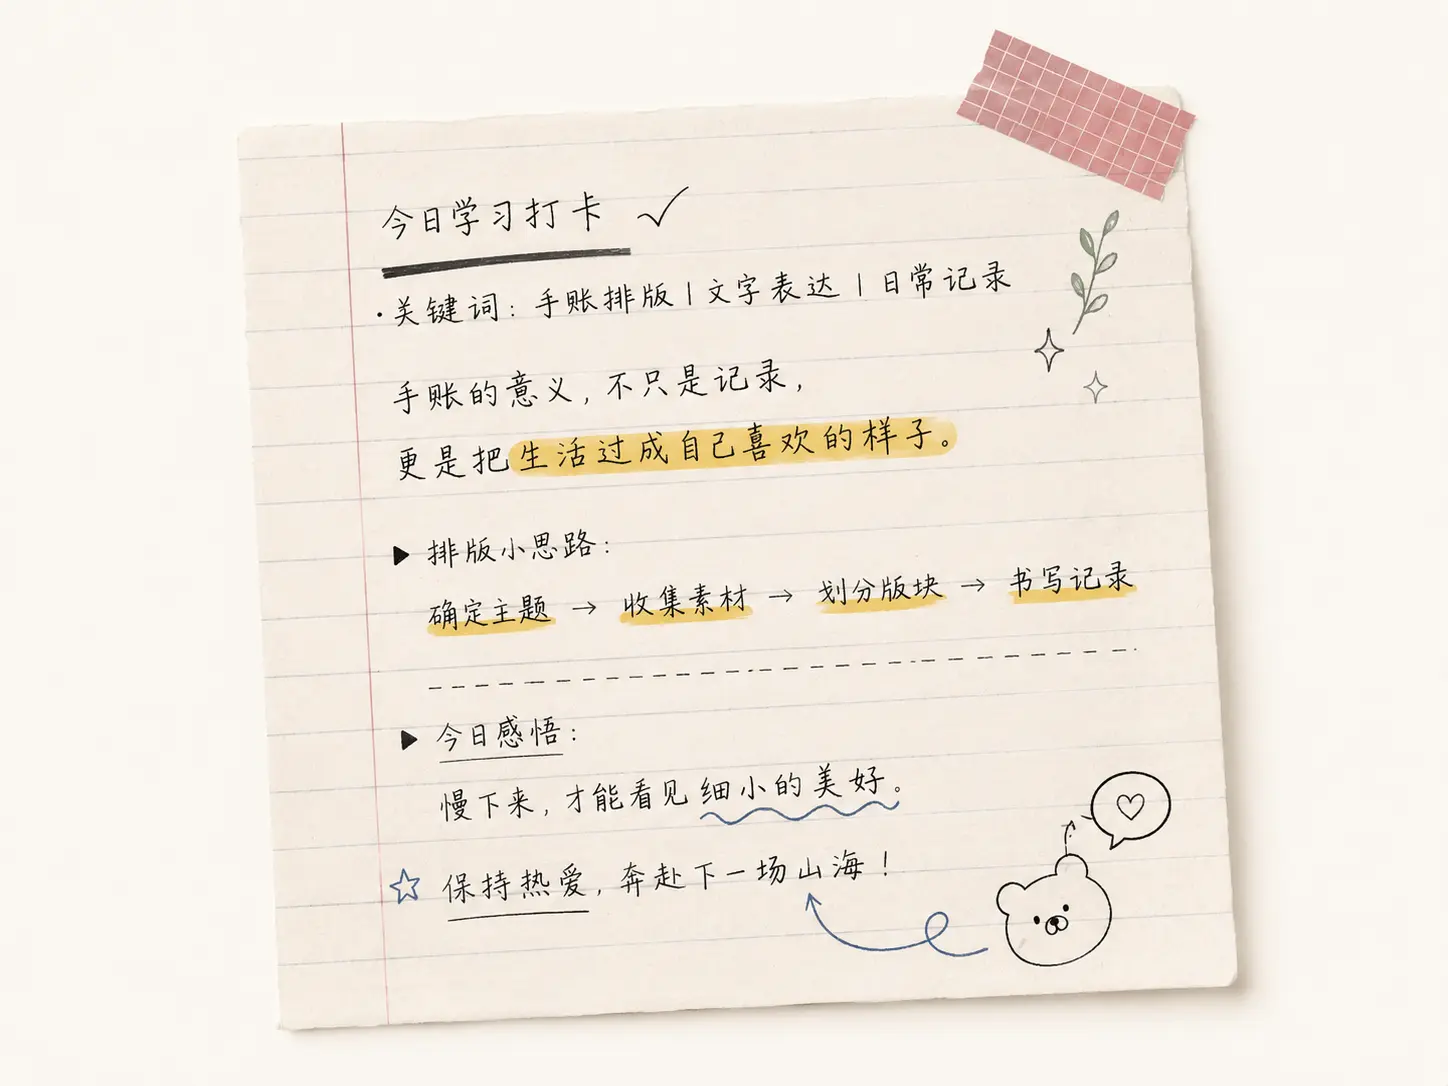 今日学习打卡 ✓
·关键词：手账排版|文字表达|日常记录
手账的意义，不只是记录，
更是把生活过成自己喜欢的样子。
▶ 排版小思路：
确定主题 → 收集素材 → 划分版块 → 书写记录
▶ 今日感悟：
慢下来，才能看见细小的美好。
☆ 保持热爱，奔赴下一场山海！